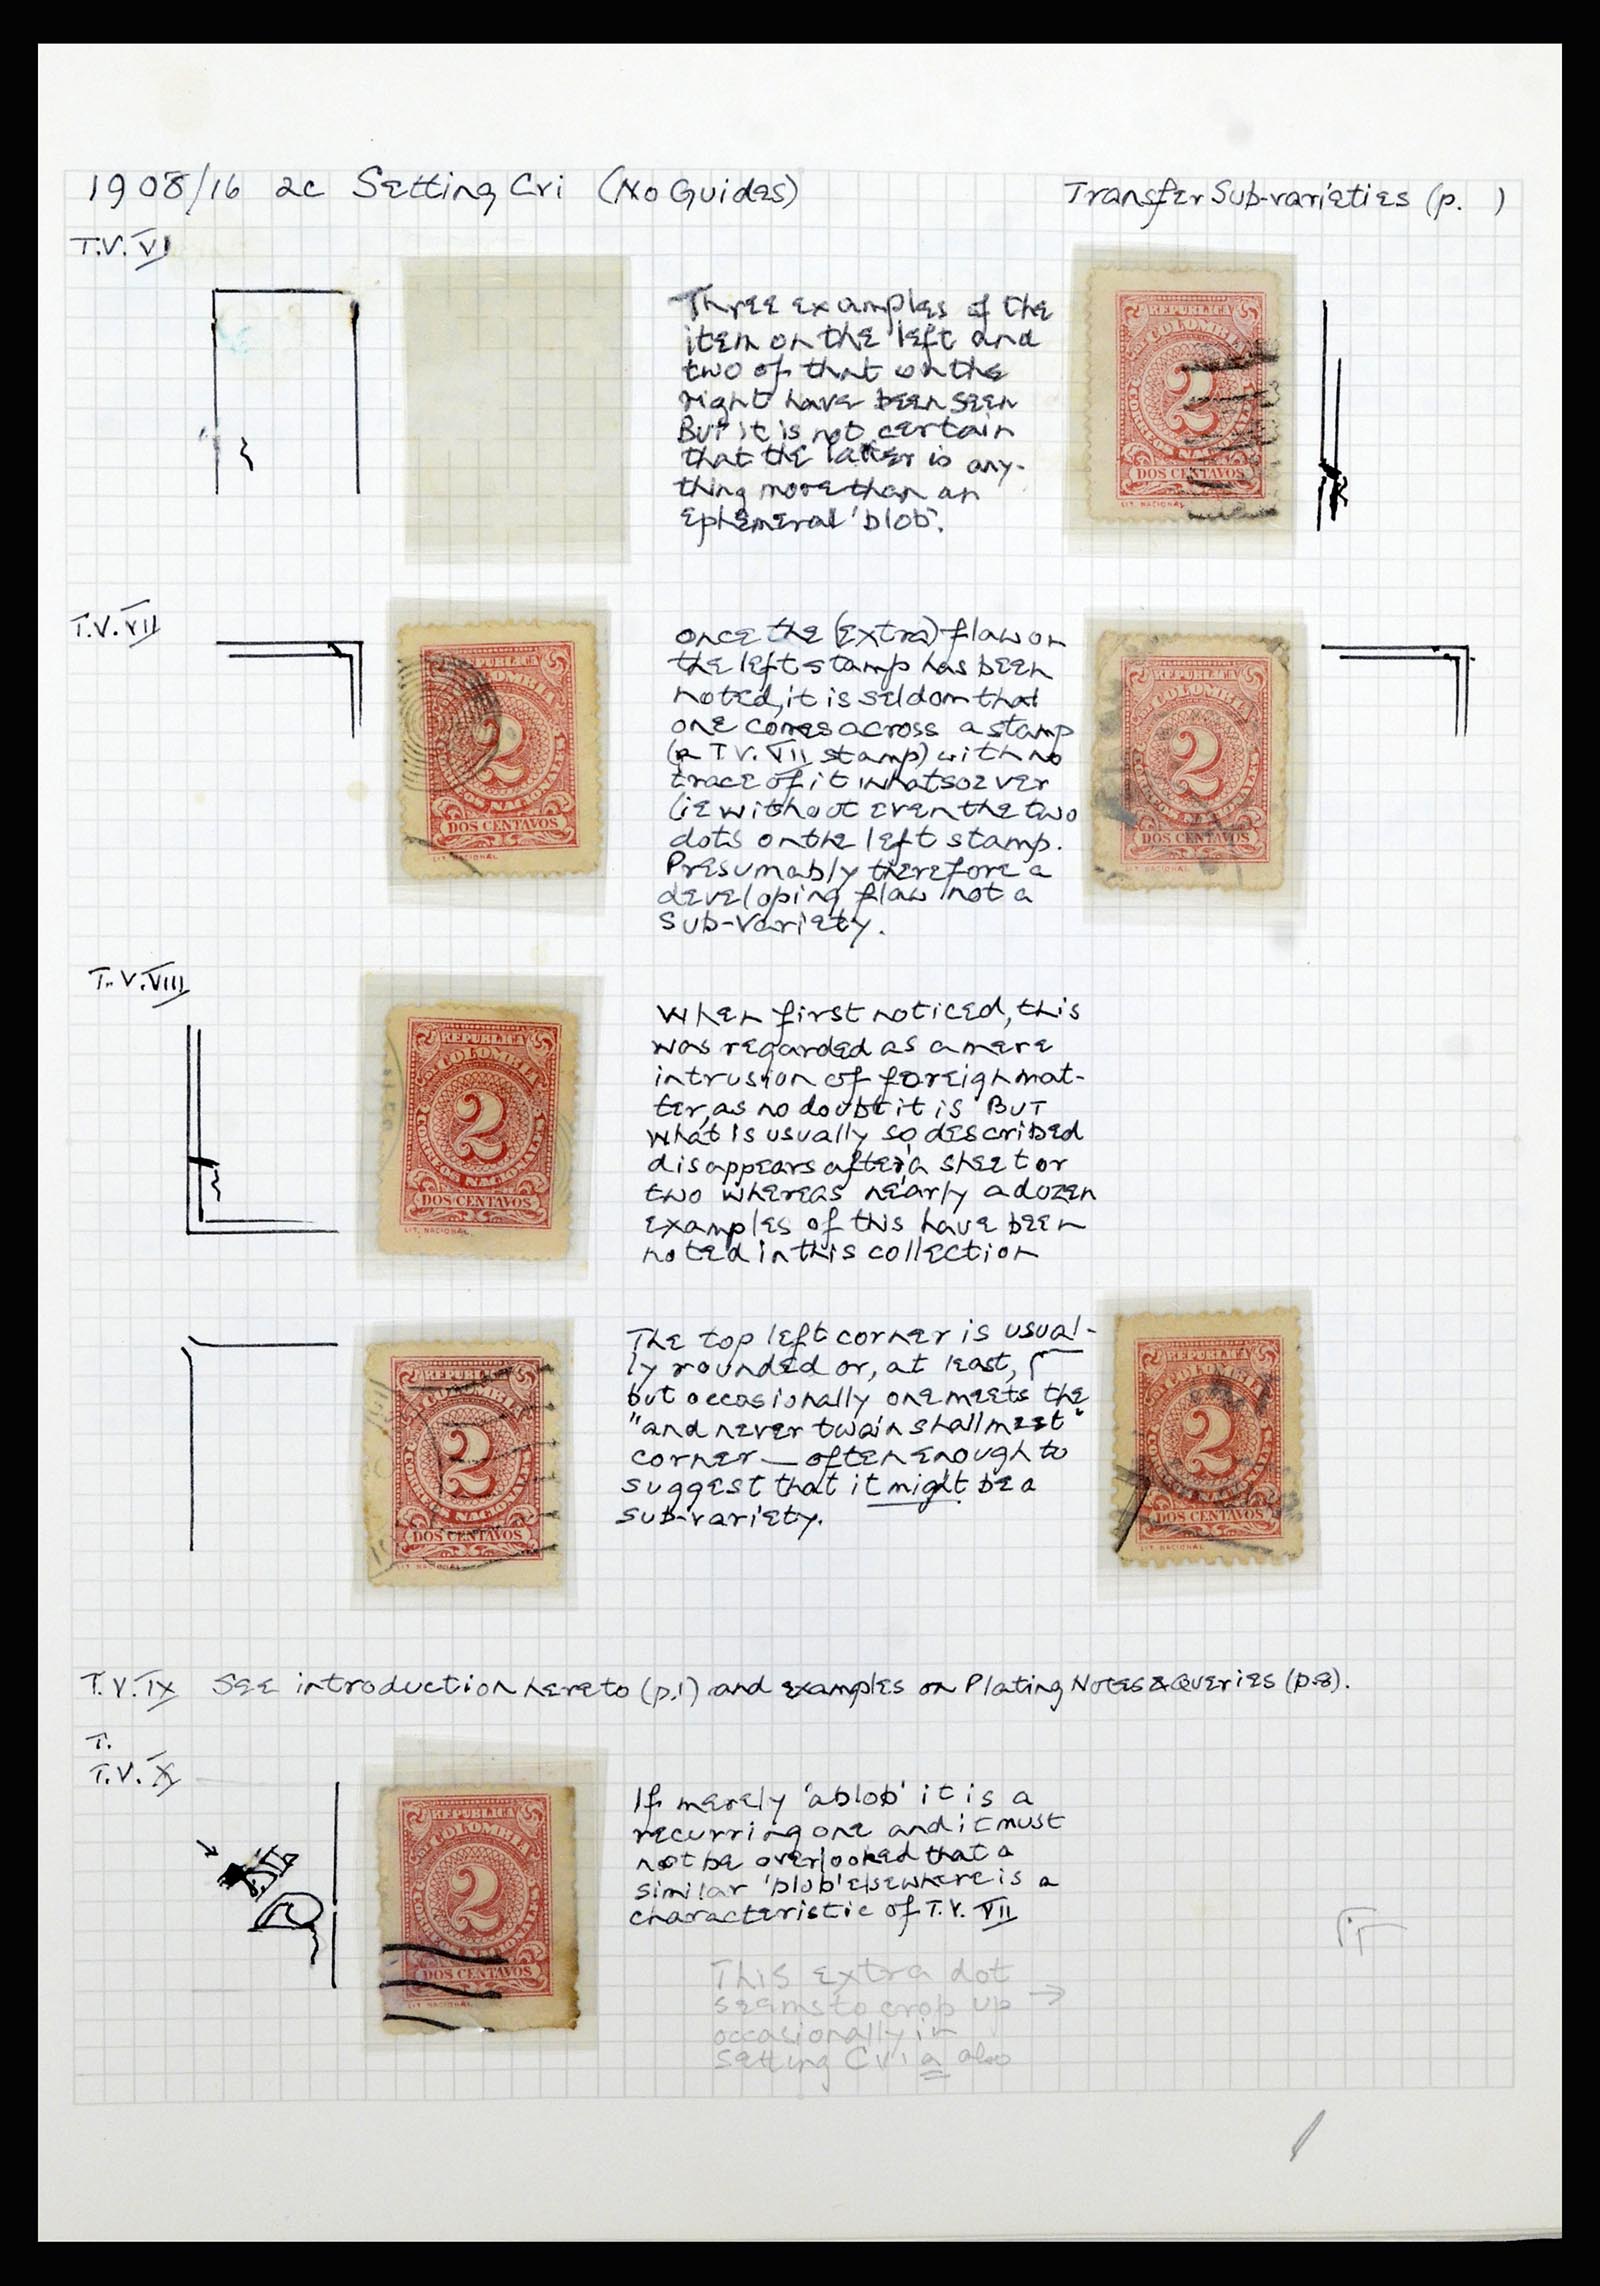 1908/16 2c Setting Cvi (No Guides)
Transfer Sub-varieties (p. )
T.V. VI
Three examples of the
item on the left and
two of that on the
right have been seen
But it is not certain
that the latter is any-
thing more than an
ephemeral 'blob'.
REPUBLICA
COLOMBIA
2
CORREOS NACIONALES
DOS CENTAVOS
LIT. NACIONAL
T.V. VII
REPUBLICA
COLOMBIA
2
CORREOS NACIONALES
DOS CENTAVOS
LIT. NACIONAL
once the (extra) flaw on
the left stamp has been
noted, it is seldom that
one comes across a stamp
(a T.V. VII stamp) with no
trace of it whatsoever
(ie without even the two
dots on the left stamp.
Presumably therefore a
developing flaw not a
sub-variety.
REPUBLICA
COLOMBIA
2
CORREOS NACIONALES
DOS CENTAVOS
LIT. NACIONAL
T.V. VIII
REPUBLICA
COLOMBIA
2
CORREOS NACIONALES
DOS CENTAVOS
LIT. NACIONAL
When first noticed, this
was regarded as a mere
intrusion of foreign mat-
ter, as no doubt it is But
what is usually so described
disappears after a sheet or
two whereas nearly a dozen
examples of this have been
noted in this collection
REPUBLICA
COLOMBIA
2
CORREOS NACIONALES
DOS CENTAVOS
LIT. NACIONAL
The top left corner is usual-
ly rounded or, at least,
but occasionally one meets the
"and never twain shall meet"
corner — often enough to
suggest that it might be a
sub-variety.
REPUBLICA
COLOMBIA
2
CORREOS NACIONALES
DOS CENTAVOS
LIT. NACIONAL
T.V. IX See introduction hereto (p.1) and examples on Plating Notes & Queries (p.8).
T.
T.V. X
REPUBLICA
COLOMBIA
2
CORREOS NACIONALES
DOS CENTAVOS
LIT. NACIONAL
If merely 'a blob' it is a
recurring one and it must
not be overlooked that a
similar 'blob' elsewhere is a
characteristic of T.V. VII
This extra dot
seems to crop up →
occasionally in
Setting Cvi a also